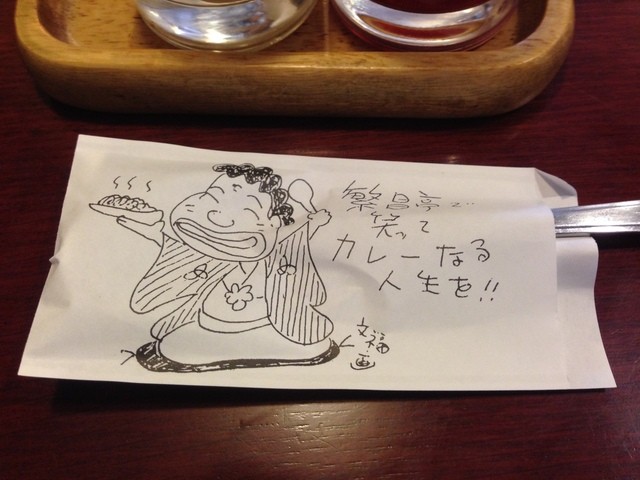 繁昌亭で
笑って
カレーなる
人生を!!
文福
画